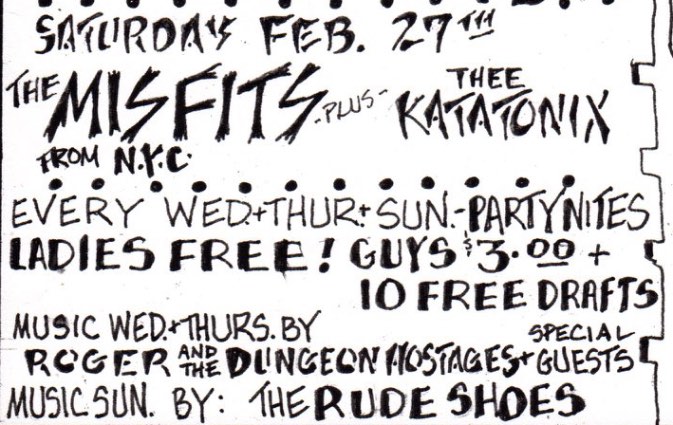 SATURDAY FEB. 27TH
THE MISFITS -PLUS- THEE KATATONIX
FROM N.Y.C.
EVERY WED.+THUR.+SUN.-PARTY NITES
LADIES FREE! GUYS $3.00 +
10 FREE DRAFTS
MUSIC WED.+THURS. BY
ROGER AND THE DUNGEON HOSTAGES + SPECIAL GUESTS
MUSIC SUN. BY: THE RUDE SHOES